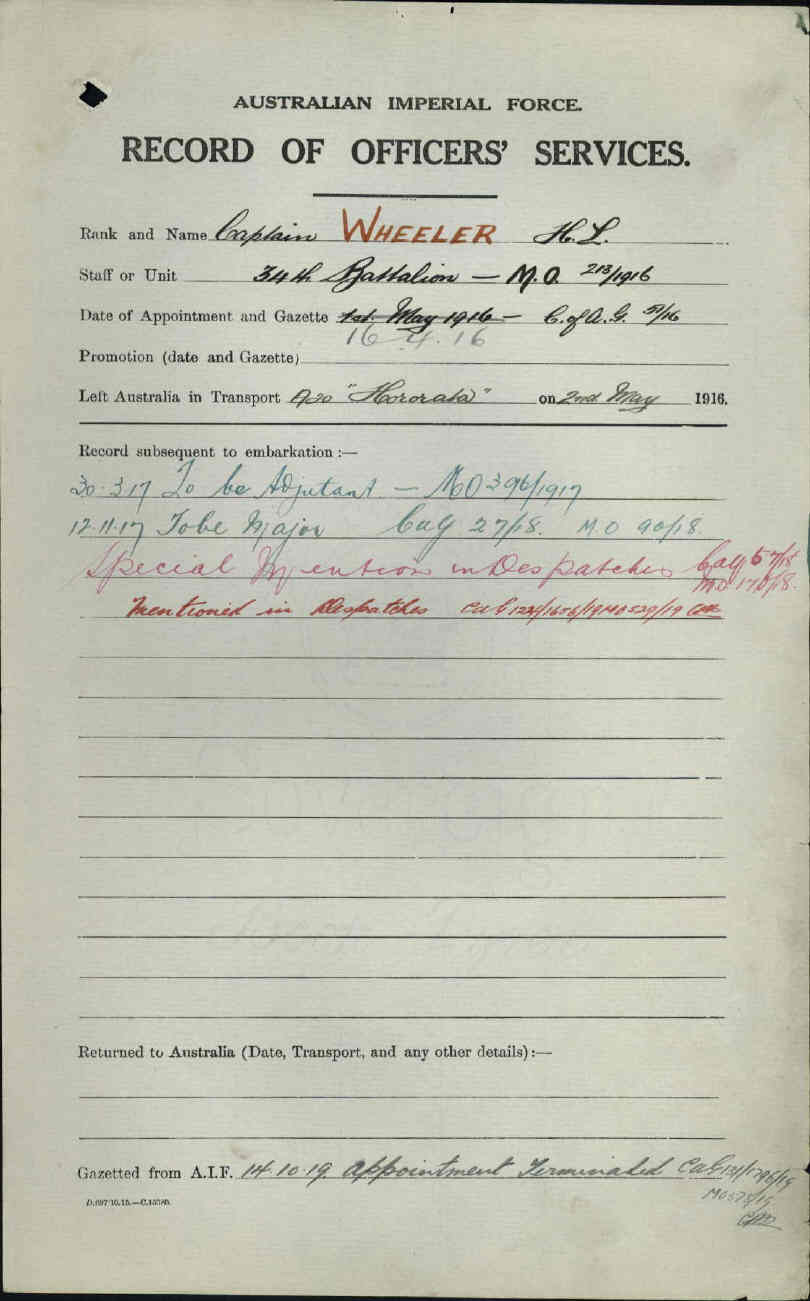 AUSTRALIAN IMPERIAL FORCE.
RECORD OF OFFICERS' SERVICES.
Rank and Name Captain WHEELER H. L.
Staff or Unit 34th Battalion — M.O. 213/1916
Date of Appointment and Gazette 1st May 1916 — C. of A. G. 51/16
16 4. 16
Promotion (date and Gazette)
Left Australia in Transport A20 "Hororata" on 2nd May 1916.
Record subsequent to embarkation :—
30.3.17 To be Adjutant — MO 396/1917
12.11.17 To be Major CaG 27/18. M.O 90/18.
Special Mention in Despatches CaG 57/18
M.O 170/18.
Mentioned in Despatches CaG 124/1656/19 MO 529/19
Returned to Australia (Date, Transport, and any other details) :—
Gazetted from A.I.F. 14.10.19. Appointment Terminated CaG 131/1796/19
MO 575/19
D.697/10.15.—C.15780.